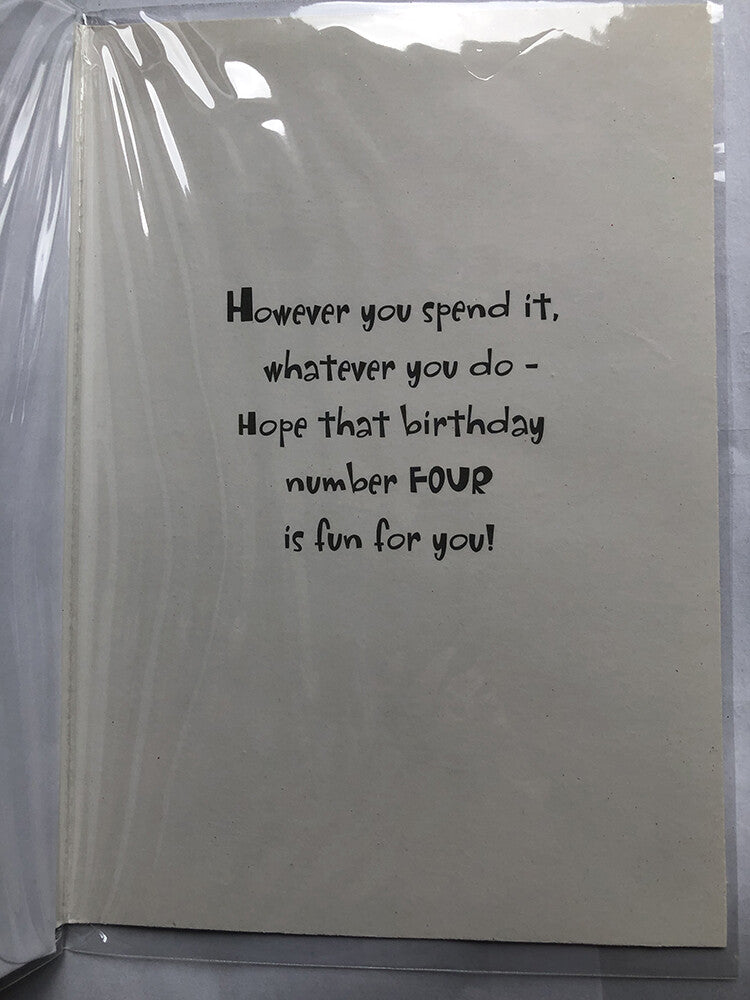 However you spend it,
whatever you do -
Hope that birthday
number FOUR
is fun for you!